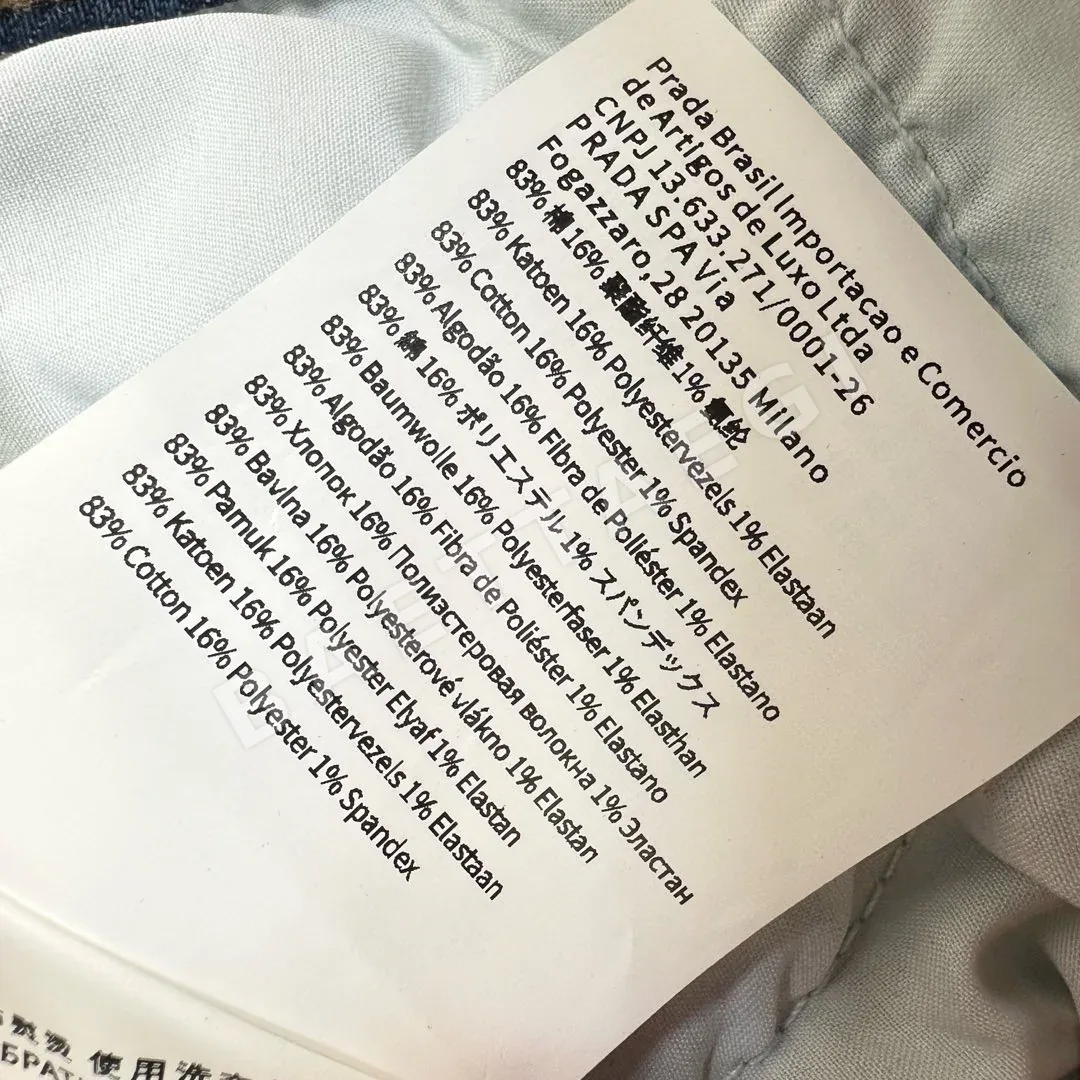 Prada BrasilImportacao e Comercio
de Artigos de Luxo Ltda
CNPJ 13.633.271/0001-26
PRADA SPA Via
Fogazzaro,28 20135 Milano
83% 棉 16% 聚酯纤维 1% 氨纶
83% Katoen 16% Polyestervezels 1% Elastaan
83% Cotton 16% Polyester 1% Spandex
83% Algodão 16% Fibra de Poliéster 1% Elastano
83% 綿 16% ポリエステル 1% スパンデックス
83% Baumwolle 16% Polyesterfaser 1% Elasthan
83% Algodão 16% Fibra de Poliéster 1% Elastano
83% Хлопок 16% Полиэстеровая волокна 1% Эластан
83% Bavlna 16% Polyesterové vlákno 1% Elastan
83% Pamuk 16% Polyester Elyaf 1% Elastan
83% Katoen 16% Polyestervezels 1% Elastaan
83% Cotton 16% Polyester 1% Spandex
使用洗